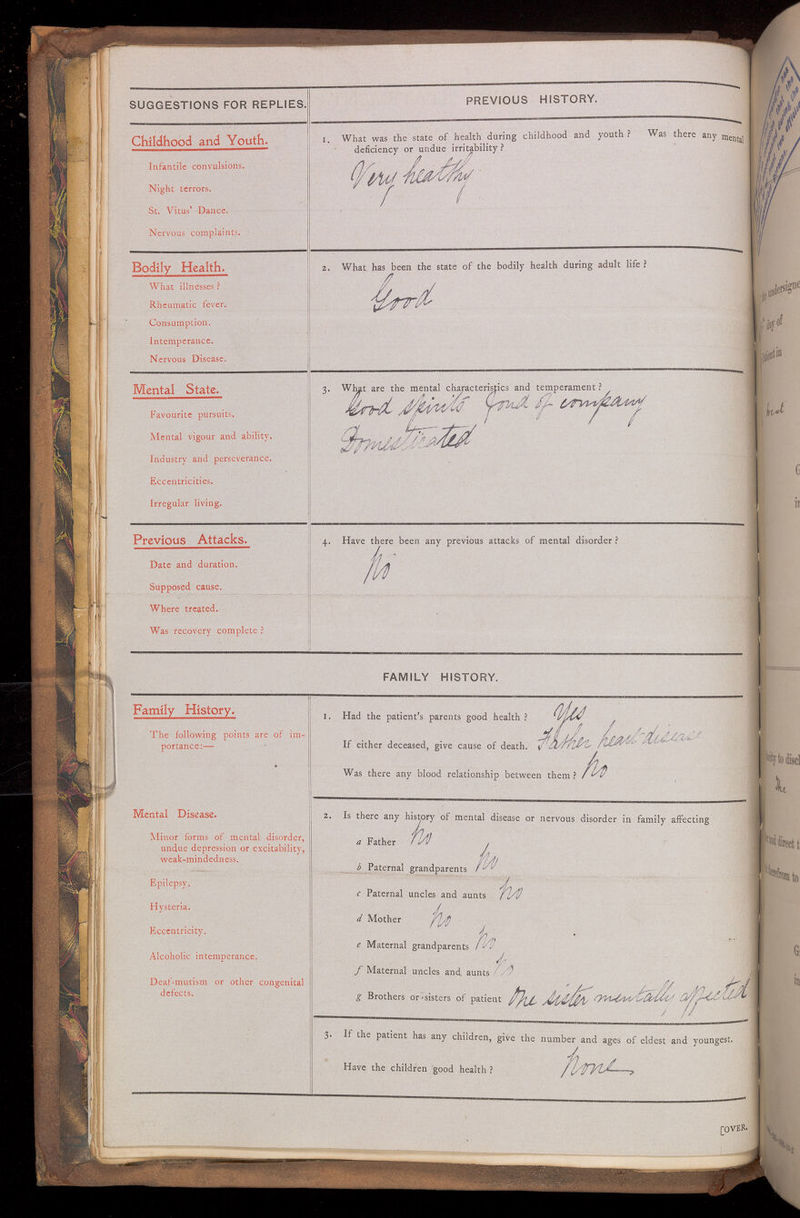 SUGGESTIONS FOR REPLIES.
PREVIOUS HISTORY.
Childhood and Youth.
Infantile convulsions.
Night terrors.
St. Vitus' Dance.
Nervous complaints.
1. What was the state of health during childhood and youth? Was there any mental
deficiency or undue irritability?
Very healthy
Bodily Health.
What illnesses?
Rheumatic fever.
Consumption.
Intemperance.
Nervous Disease.
2. What has been the state of the bodily health during adult life?
Good
Mental State.
Favourite pursuits.
Mental vigour and ability.
Industry and perseverance.
Eccentricities.
Irregular living.
3. What are the mental characteristics and temperament?
Good spirits fond of company
Domesticated
Previous Attacks.
Date and duration.
Supposed cause.
Where treated.
Was recovery complete?
4. Have there been any previous attacks of mental disorder?
No
FAMILY HISTORY.
Family History.
The following points are of im-
portance:—
1. Had the patient's parents good health? Yes
If either deceased, give cause of death. Father heart disease
Was there any blood relationship between them? No
Mental Disease.
Minor forms of mental disorder,
undue depression or excitability,
weak-mindedness.
Epilepsy.
Hysteria.
Eccentricity.
Alcoholic intemperance.
Deaf-mutism or other congenital
defects.
2. Is there any history of mental disease or nervous disorder in family affecting
a Father No
b Paternal grandparents No
c Paternal uncles and aunts No
d Mother No
e Maternal grandparents No
f Maternal uncles and aunts No
g Brothers or sisters of patient One sister mentally affected
3. If the patient has any children, give the number and ages of eldest and youngest.
Have the children good health? None
[OVER.
undersigne
day of
to disel
direct t
therefrom to